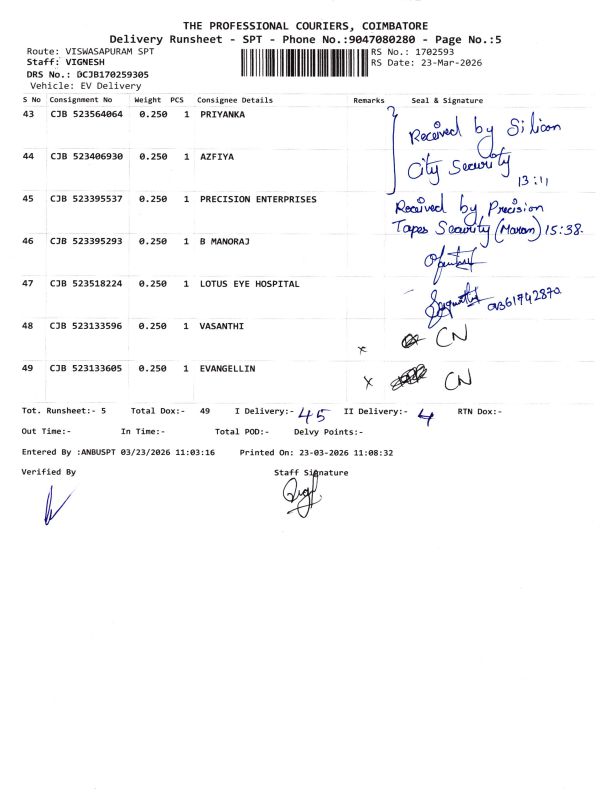 THE PROFESSIONAL COURIERS, COIMBATORE
Delivery Runsheet - SPT - Phone No.:9047080280 - Page No.:5
Route: VISWASAPURAM SPT RS No.: 1702593
Staff: VIGNESH RS Date: 23-Mar-2026
DRS No.: DCJB170259305
Vehicle: EV Delivery
S No Consignment No Weight PCS Consignee Details Remarks Seal & Signature
43 CJB 523564064 0.250 1 PRIYANKA
Received by Silicon
44 CJB 523406930 0.250 1 AZFIYA
City Security
13:11
45 CJB 523395537 0.250 1 PRECISION ENTERPRISES
Received by Precision
Tapes Security (Maran) 15:38.
46 CJB 523395293 0.250 1 B MANORAJ
47 CJB 523518224 0.250 1 LOTUS EYE HOSPITAL
9361742870
48 CJB 523133596 0.250 1 VASANTHI x CN
49 CJB 523133605 0.250 1 EVANGELLIN x CN
Tot. Runsheet:- 5 Total Dox:- 49 I Delivery:- 45 II Delivery:- 4 RTN Dox:-
Out Time:- In Time:- Total POD:- Delvy Points:-
Entered By :ANBUSPT 03/23/2026 11:03:16 Printed On: 23-03-2026 11:08:32
Verified By Staff Signature